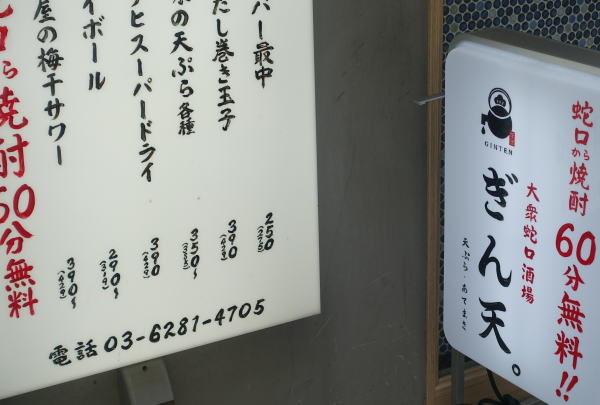 口から焼酎60分無料
屋の梅干サワー
390〜
(429)
イボール
290〜
(319)
ヒスーパードライ
390
(429)
の天ぷら各種
350〜
(385)
だし巻き玉子
390
(429)
バー最中
250
(275)
電話 03-6281-4705
蛇口から焼酎60分無料!!
大衆蛇口酒場
GINTEN
ぎん天。
天ぷら・あてまき